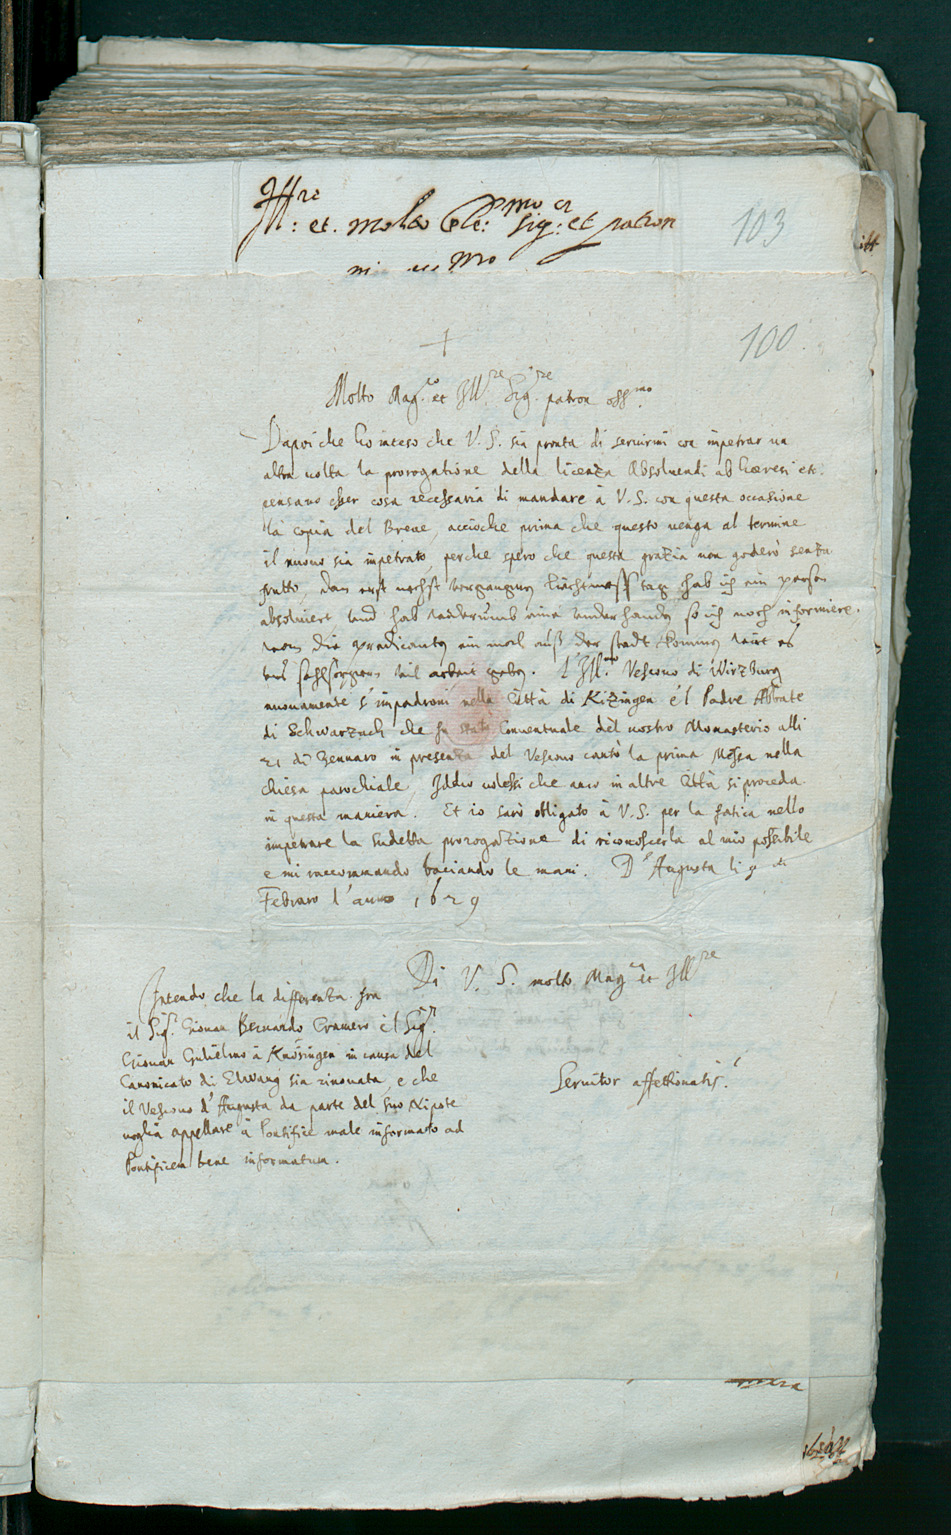 Ill:re et. molto Rle: mo Sig:r et patron
mio mo
103
100
+
Molto Mag.co et Ill.re Sig.re patron oss.mo
Dapoi che ho inteso che V. S. sia pronta di seruirmi con impetrar un
altra uolta la prorogatione della licenza Absoluendi ab haeresi etc.
pensauo esser cosa necessaria di mandare à V. S. con questa occasione
la copia del Breue, accioche prima che questo uenga al termine
il nuouo sia impetrato, perche spero che questa grazia non goderò senza
frutto, dan erst nechst vergangnen Liechtmesstag hab ich ein person
absoluiert vnd hab widerumb eine vnderhanden so ich noch informiere.
wen die praedicanten ein mol auß der stadt kommen wirt es
vns sehlsorgern vil arbeit geben. L'Ill.mo Vescouo di Wirzburg
nuouamente s'impadroni nella Città di Kizingen e'l Padre Abbate
di Schwarzach che fu stato Conuentuale del nostro Monasterio alli
21 di Gennaro in presenza del Vescouo cantò la prima Messa nella
chiesa parochiale, Iddio volessi che anco in altre Città si proceda
in questa maniera. Et io sarò obligato à V. S. per la fatica nello
impetrare la sudetta prorogatione di riconoscerla al mio possibile
e mi raccommando baciando le mani. D'Augusta li 9 di
Febraro l'anno 1629
Di V. S. molto Mag.co et Ill.re
Intendo che la differenza fra
il Sig.r Giouan Bernardo Cramero e'l Sig.r
Giouan Gulielmo à Knöringen in causa del
Canonicato di Elwang sia rinouata, e che
il Vescouo d'Augusta da parte del suo Nipote
uoglia appellare à Pontifice male informato ad
Pontificem bene informatum.
Seruitor affettionatis.o